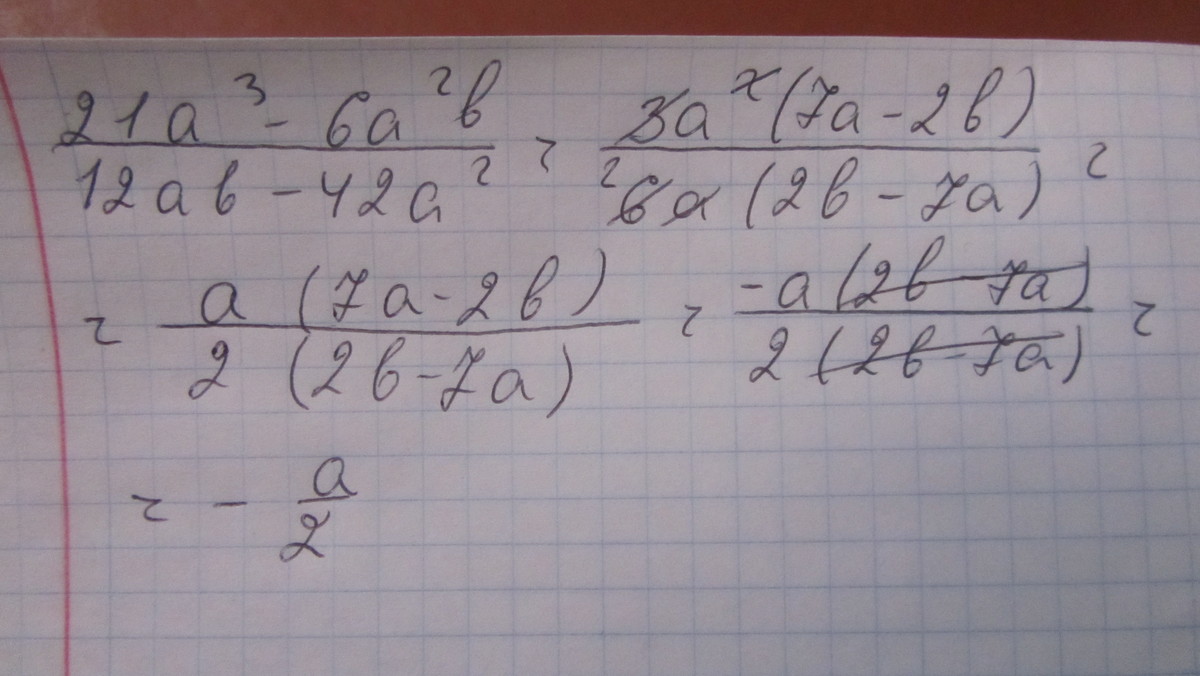 21a³ - 6a²b / 12ab - 42a² = 3a²(7a - 2b) / ²6a(2b - 7a) =
= a(7a - 2b) / 2(2b - 7a) = -a(2b - 7a) / 2(2b - 7a) =
= - a / 2